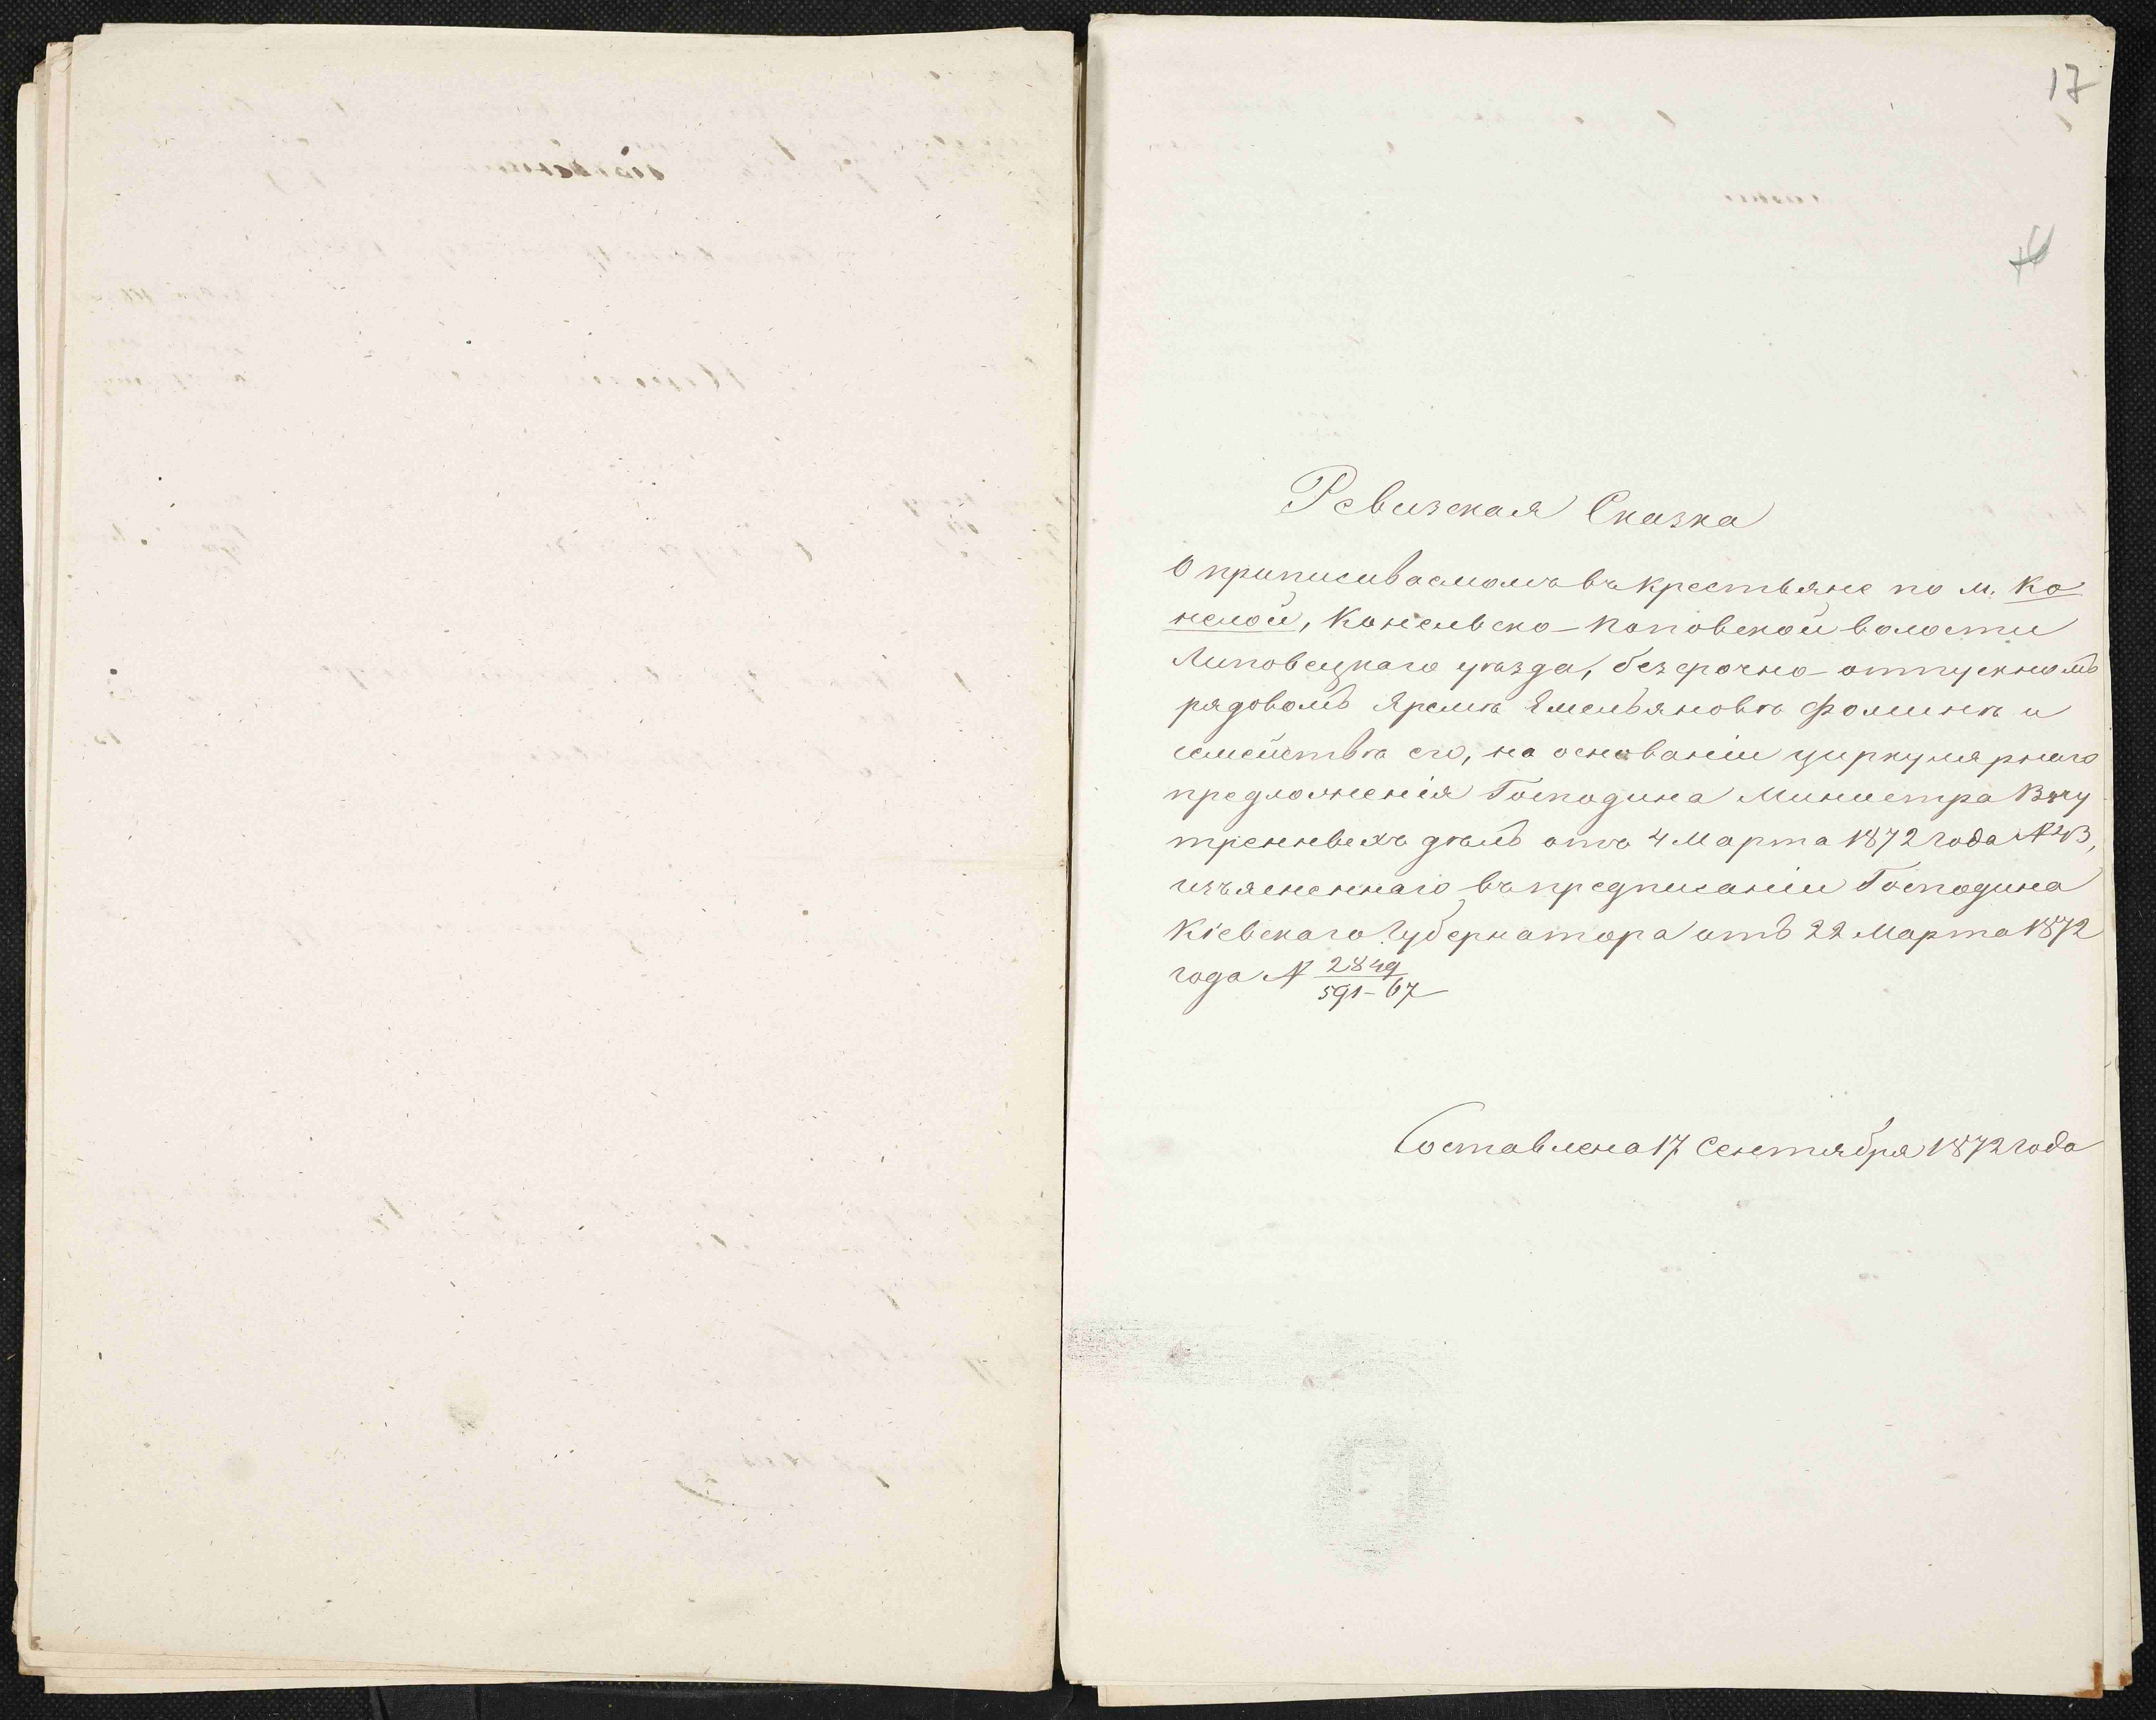 17
Ревизская Сказка
О приписиваемомъ въ крестьяне по м. Ко
нелой, Конельско-Поповской волости
Липовецкаго уѣзда, безсрочно-отпускномъ
рядовомъ Яремѣ Емельяновѣ Фоминѣ и
семействѣ его, на основаніи циркулярнаго
предложенія Господина Министра Вну
треннехъ дѣлъ отъ 4 Марта 1872 года №
изъясненнаго въ предписаніи Господина
Кіевскаго Губернатора отъ 22 Марта 1872
года № 2849
591-67
Составлена 17 Сентября 1872 года